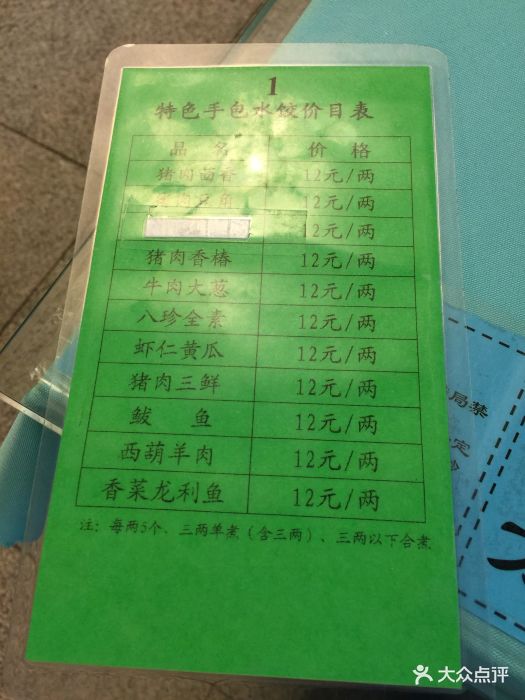 1
特色手包水饺价目表
品 名 价 格
猪肉茴香 12元/两
猪肉豆角 12元/两
12元/两
猪肉香椿 12元/两
牛肉大葱 12元/两
八珍全素 12元/两
虾仁黄瓜 12元/两
猪肉三鲜 12元/两
鲅 鱼 12元/两
西葫羊肉 12元/两
香菜龙利鱼 12元/两
注：每两5个、三两单煮（含三两）、三两以下合煮
局禁
定
大众点评